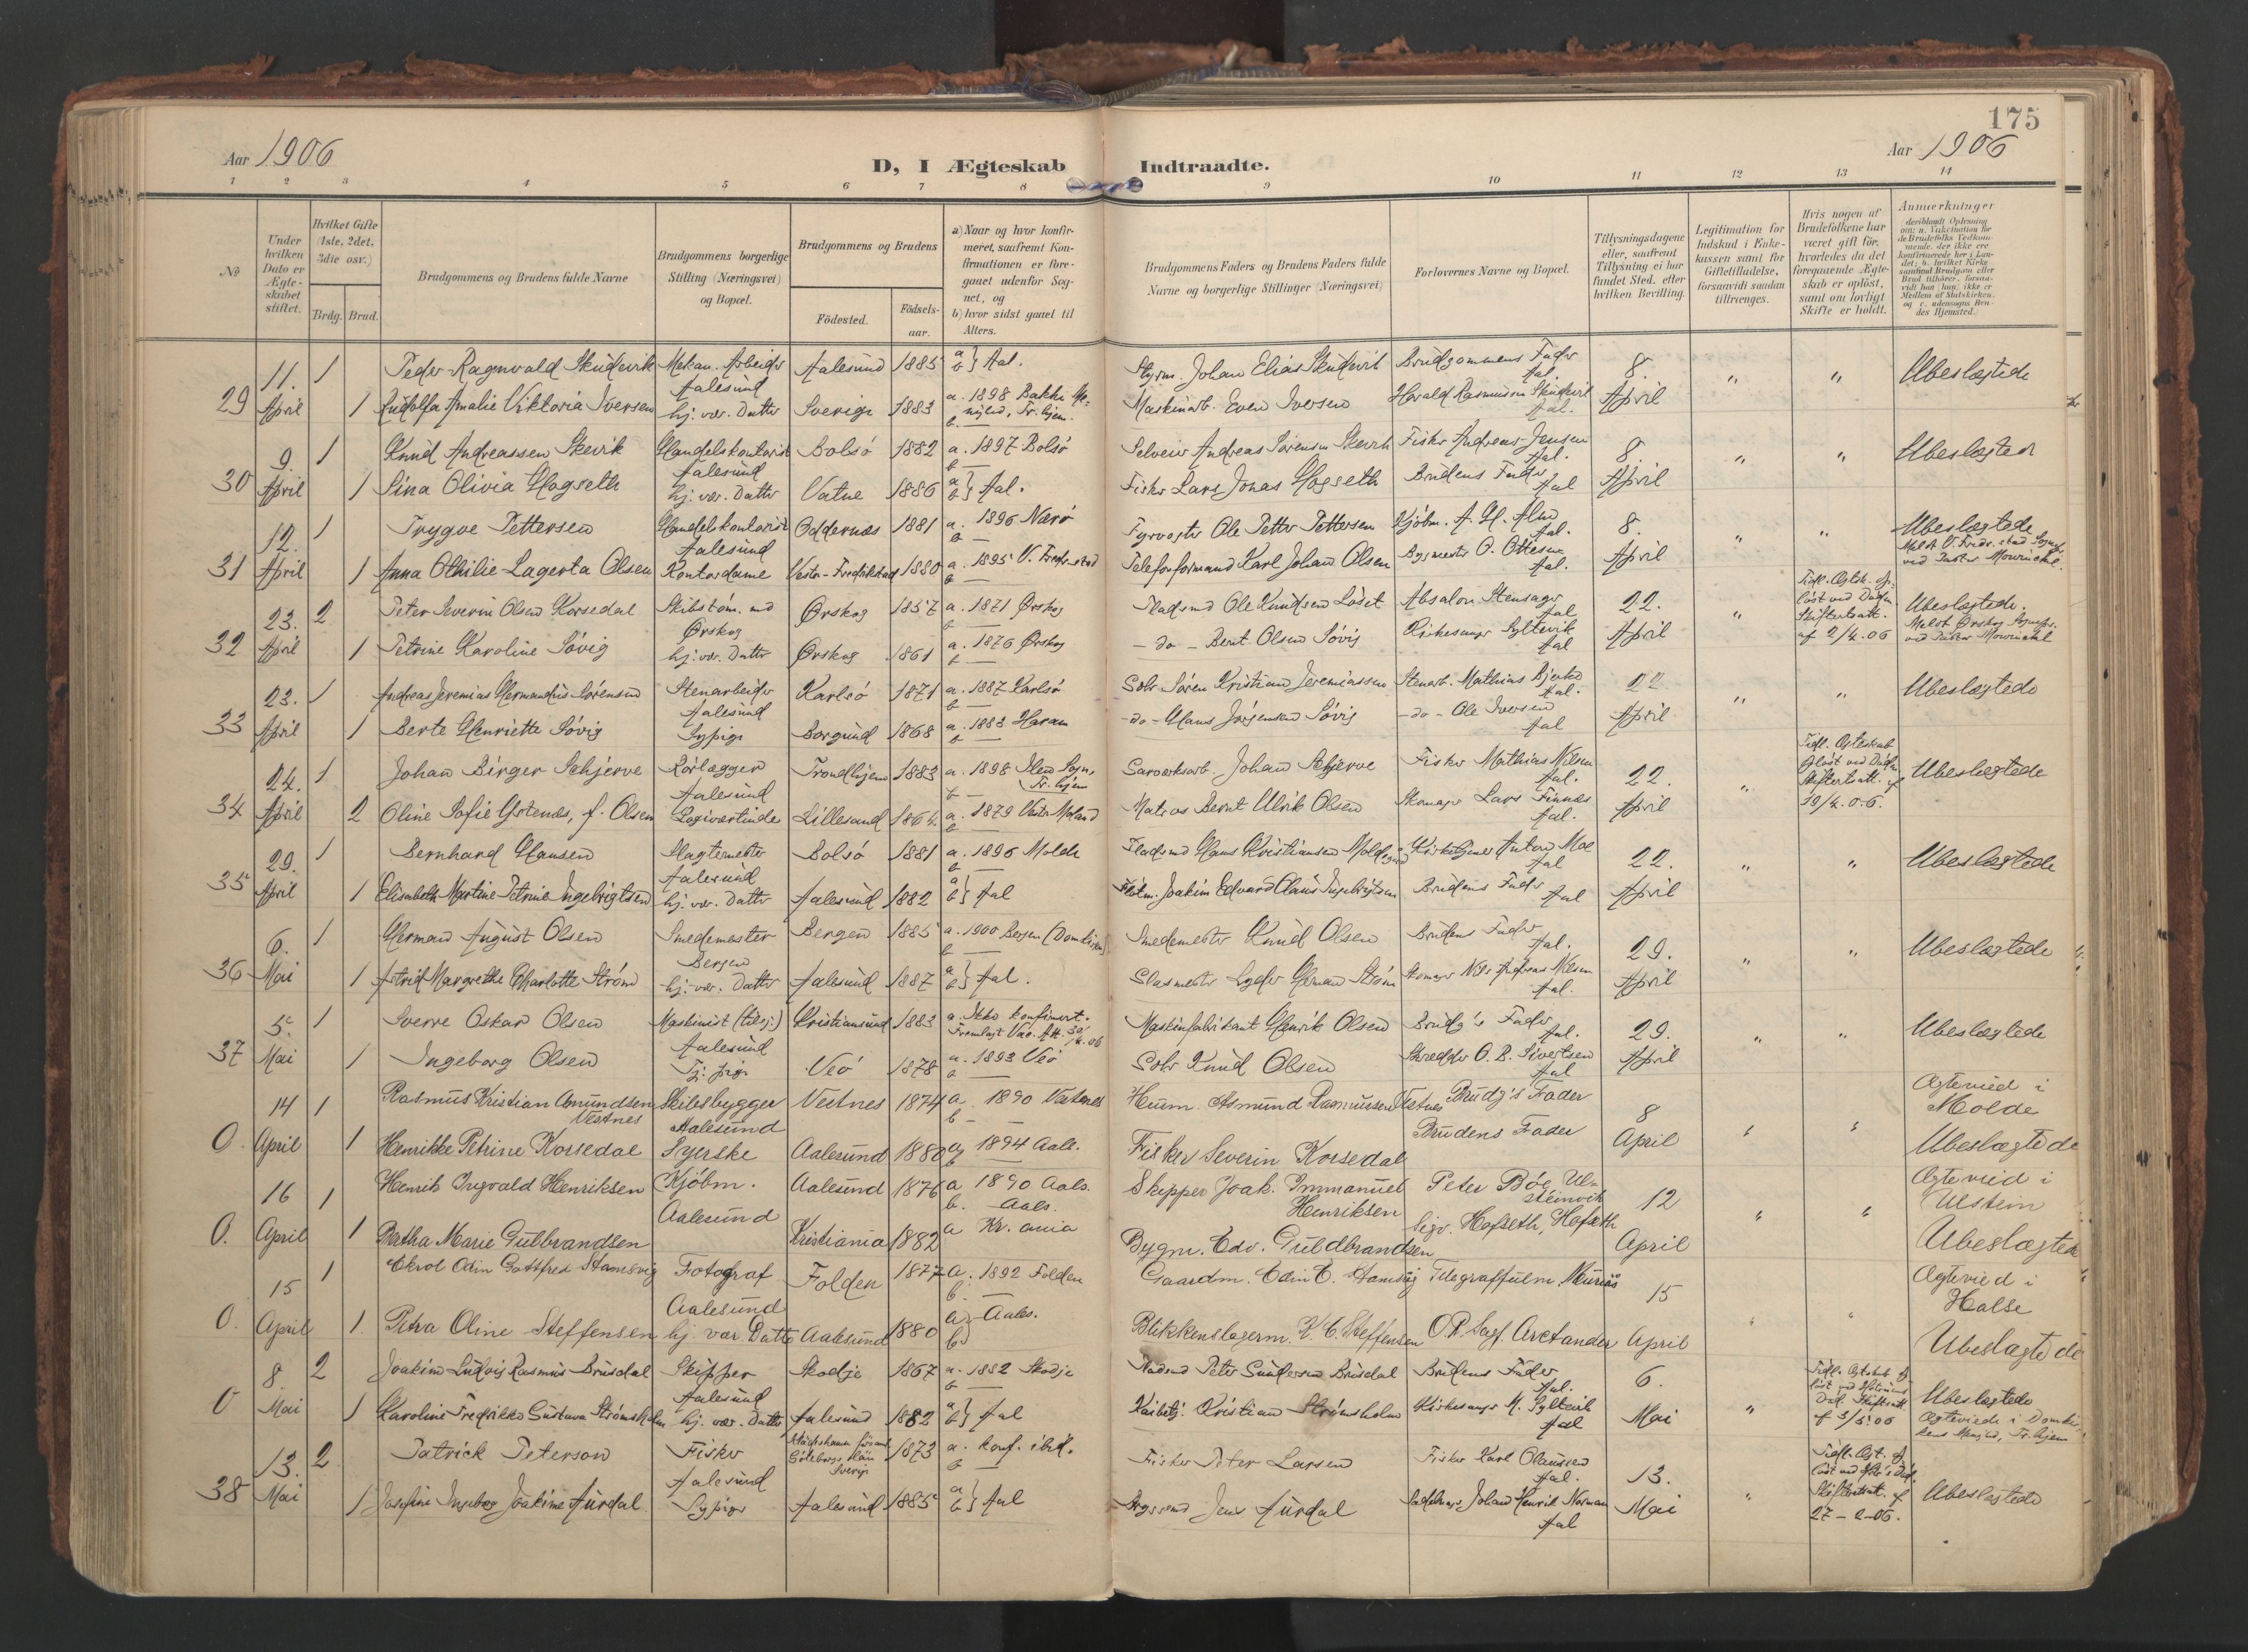 175
Aar 1906
D, I Ægteskab Indtraadte.
Aar 1906
1 2 3 4 5 6 7 8 9 10 11 12 13 14
No
Under hvilken Dato er Ægteskabet stiftet.
Hvilket Gifte (1ste, 2det, 3die osv.)
Brdg. Brud.
Brudgommens og Brudens fulde Navne
Brudgommens borgerlige Stilling (Næringsvei) og Bopæl.
Brudgommens og Brudens
Fødested.
Fødselsaar.
a) Naar og hvor konfirmeret, saafremt Konfirmationen er foregaaet udenfor Sognet, og
b) hvor sidst gaaet til Alters.
Brudgommens Faders og Brudens Faders fulde Navne og borgerlige Stillinger (Næringsvei)
Forlovernes Navne og Bopæl.
Tillysningsdagene eller, saafremt Tillysning ei har fundet Sted, efter hvilken Bevilling.
Legitimation for Indskud i Enkekassen samt for Giftetilladelse, forsaavidt saadan tiltrænges.
Hvis nogen af Brudefolkene har været gift før, hvorledes da det foregaaende Ægteskab er opløst, samt om lovligt Skifte er holdt.
Anmærkninger
29 11. April 1 Peder Ragnvald Skudevik Mekan. Arbeider Aalesund Aalesund 1885 a b } Aal. Styrm. Johan Elias Skudevik Brudgommens Fader Aal. 8. April " " Ubeslægtede
1 Rudolfa Amalie Viktoria Iversen hj. vær. Datter Sverige 1883 a. 1898 Bakke Tr.hjem. b. — Maskinarb. Even Iversen Harald Rasmussen Skudevik Aal.
30 9. April 1 Knud Andreassen Skevik Handelskontorist Aalesund Bolsø 1882 a. 1897 Bolsø b — Selveier Andreas Sørensen Skevik Fisker Andreas Jensen Aal. 8. April " " Ubeslægtede
1 Sina Olivia Hagseth hj. vær. Datter Vatne 1886 a b } Aal. Fisker Lars Jonas Hagseth Brudens Fader Aal
31 12. April 1 Trygve Pettersen Handelskontorist Aalesund Oddernæs 1881 a. 1896 Nærø b — Fyrvogter Ole Petter Pettersen Kjøbm. A. H. Alm Aal. 8. April " " Ubeslægtede
1 Anna Othilie Lagerta Olsen Kontordame Vester-Fredrikstad 1880 a. 1895 V. Fredrikstad b — Telefonformand Karl Johan Olsen Bygmester O. Ottesen Aal.
32 23. April 2 Peter Severin Olsen Korsedal Skibstøm. Ørskog Ørskog 1857 a. 1871 Ørskog b — Pladsmd Ole Knudsen Løset Absalon Stensager Aal 22. April " af 2/4.06 Ubeslægtede.
1 Petrine Karoline Søvig hj. vær. Datter Ørskog 1861 a. 1876 Ørskog b — — do — Bernt Olsen Søvig Kirkesanger Syltevik Aal
33 23. April 1 Andreas Jeremias Hermandus Sørensen Stenarbeider Aalesund Karlsø 1871 a. 1887 Karlsø b — Gbr. Søren Kristian Jeremiassen Stenarb. Mathias Bjerke Aal. 22 April " " Ubeslægtede
1 Berte Henriette Søvig Sypige Borgund 1868 a. 1883 Haram b — — do — Hans Jørgensen Søvig — do — Ole Iversen Aal
34 24. April 1 Johan Birger Schjerve Rørlægger Aalesund Trondhjem 1883 a. 1898 Ilens Sogn, Tr.hjem b — Johan Schjerve Fisker Mathias Nilsen Aal. 22. April " 19/4.06. Ubeslægtede
2 Oline Sofie Ystenæs, f. Olsen Logivertinde Lillesund 1864 a. 1879 Vestre Moland b — Matros Bernt Ulrik Olsen Skomager Lars Finnæs Aal.
35 29. April 1 Bernhard Hansen Slagtermester Aalesund Bolsø 1881 a. 1896 Molde b — Pladsmd Hans Kristiansen Kirketjener Anton Moe Aal 22. April " " Ubeslægtede
1 Elisabeth Martine Petrine Ingebrigtsen hj. vær. Datter Aalesund 1882 a b } Aal Joakim Edvard Claus Ingebrigtsen Brudens Fader Aal
36 6. Mai 1 Herman August Olsen Smedemester Bergen Bergen 1885 a. 1900 Bergen (Domkirken) b — Smedemester Knud Olsen Brudens Fader Aal. 29. April " " Ubeslægtede
1 Astrid Margrethe Charlotte Strøm hj. vær. Datter Aalesund 1887 a b } Aal. Glasmester Lyder Herman Strøm Skomager Nils Andreas Nilsen Aal.
37 5. Mai 1 Sverre Oskar Olsen Maskinist (tilsj.) Aalesund Kristiansund 1883 a. Ikke konfirmert. Fremlagt Vac. Att. 30/4.06 Maskinfabrikant Henrik Olsen Brudg's Fader Aal. 29. April " " Ubeslægtede
1 Ingeborg Olsen Tj. pige Veø 1878 a. 1893 Veø b — Gbr. Knud Olsen Skredder O. B. Sivertsen Aal
0. 14 April 1 Rasmus Kristian Amundsen Vestnes Skibsbygger Aalesund Vestnes 1874 a. 1890 Vestnes b — Husm. Amund Rasmussen Vestnes Brudg's Fader 8 April " " Ægteviet i Molde
1 Henrikke Petrine Korsedal Syerske Aalesund 1880 a 1894 Aals. b — Fisker Severin Korsedal Brudens Fader Ubeslægtede
0. 16 April 1 Henrik Ingvald Henriksen Kjøbm. Aalesund Aalesund 1876 a 1890 Aals. b. Aals. Skipper Joak. Immanuel Henriksen Peter Bøe, Ulsteinvik 12 April " " Ægteviet i Ulstein
1 Bertha Marie Gulbrandsen Kristiania 1882 a Kr. ania Bygm. Edv. Guldbrandsen Sigv. Hofseth, Hofseth Ubeslægtede
0. 15 April 1 Odin Gottfred Stamsvig Fotograf Aalesund Folden 1877 a. 1892 Folden b. — Gaardm. Edin E. Stamsvig Telegraffulm. Muriås 15 April " " Ægteviet i Halse
1. Petra Oline Steffensen hj. vær. Datter Aalesund 1880 a) Aales. b) Blikkenslagerm. K. C. Steffensen O. P. Sagf. Arctander Ubeslægtede
0 8. Mai 2 Joakim Ludvig Rasmus Brusdal Skipper Aalesund Skodje 1867 a. 1882 Skodje b — Peter Gundersen Brusdal Brudens Fader Aal. 6. Mai " af 3/5.06 Ubeslægtede
1 Karoline Fredrikke Gustava Strømsholm hj. vær. Datter Aalesund 1882 a b } Aal Kristian Strømsholm Kirkesanger M. Syltevik Aal Ægteviede i Domkirkens Menighed, Tr.hjem
38 13. Mai 2 Patrick Peterson Fisker Aalesund Göteborgs län Sverige 1873 a. konf. ibid. b — Fisker Peter Larsen Fisker Karl Olaussen Aal. 13. Mai " 27-2-06. Ubeslægtede
1 Josefine Ingeborg Joakime Aurdal Sypige Aalesund 1885 a b } Aal Jens Aurdal Johan Henrik Norman Aal